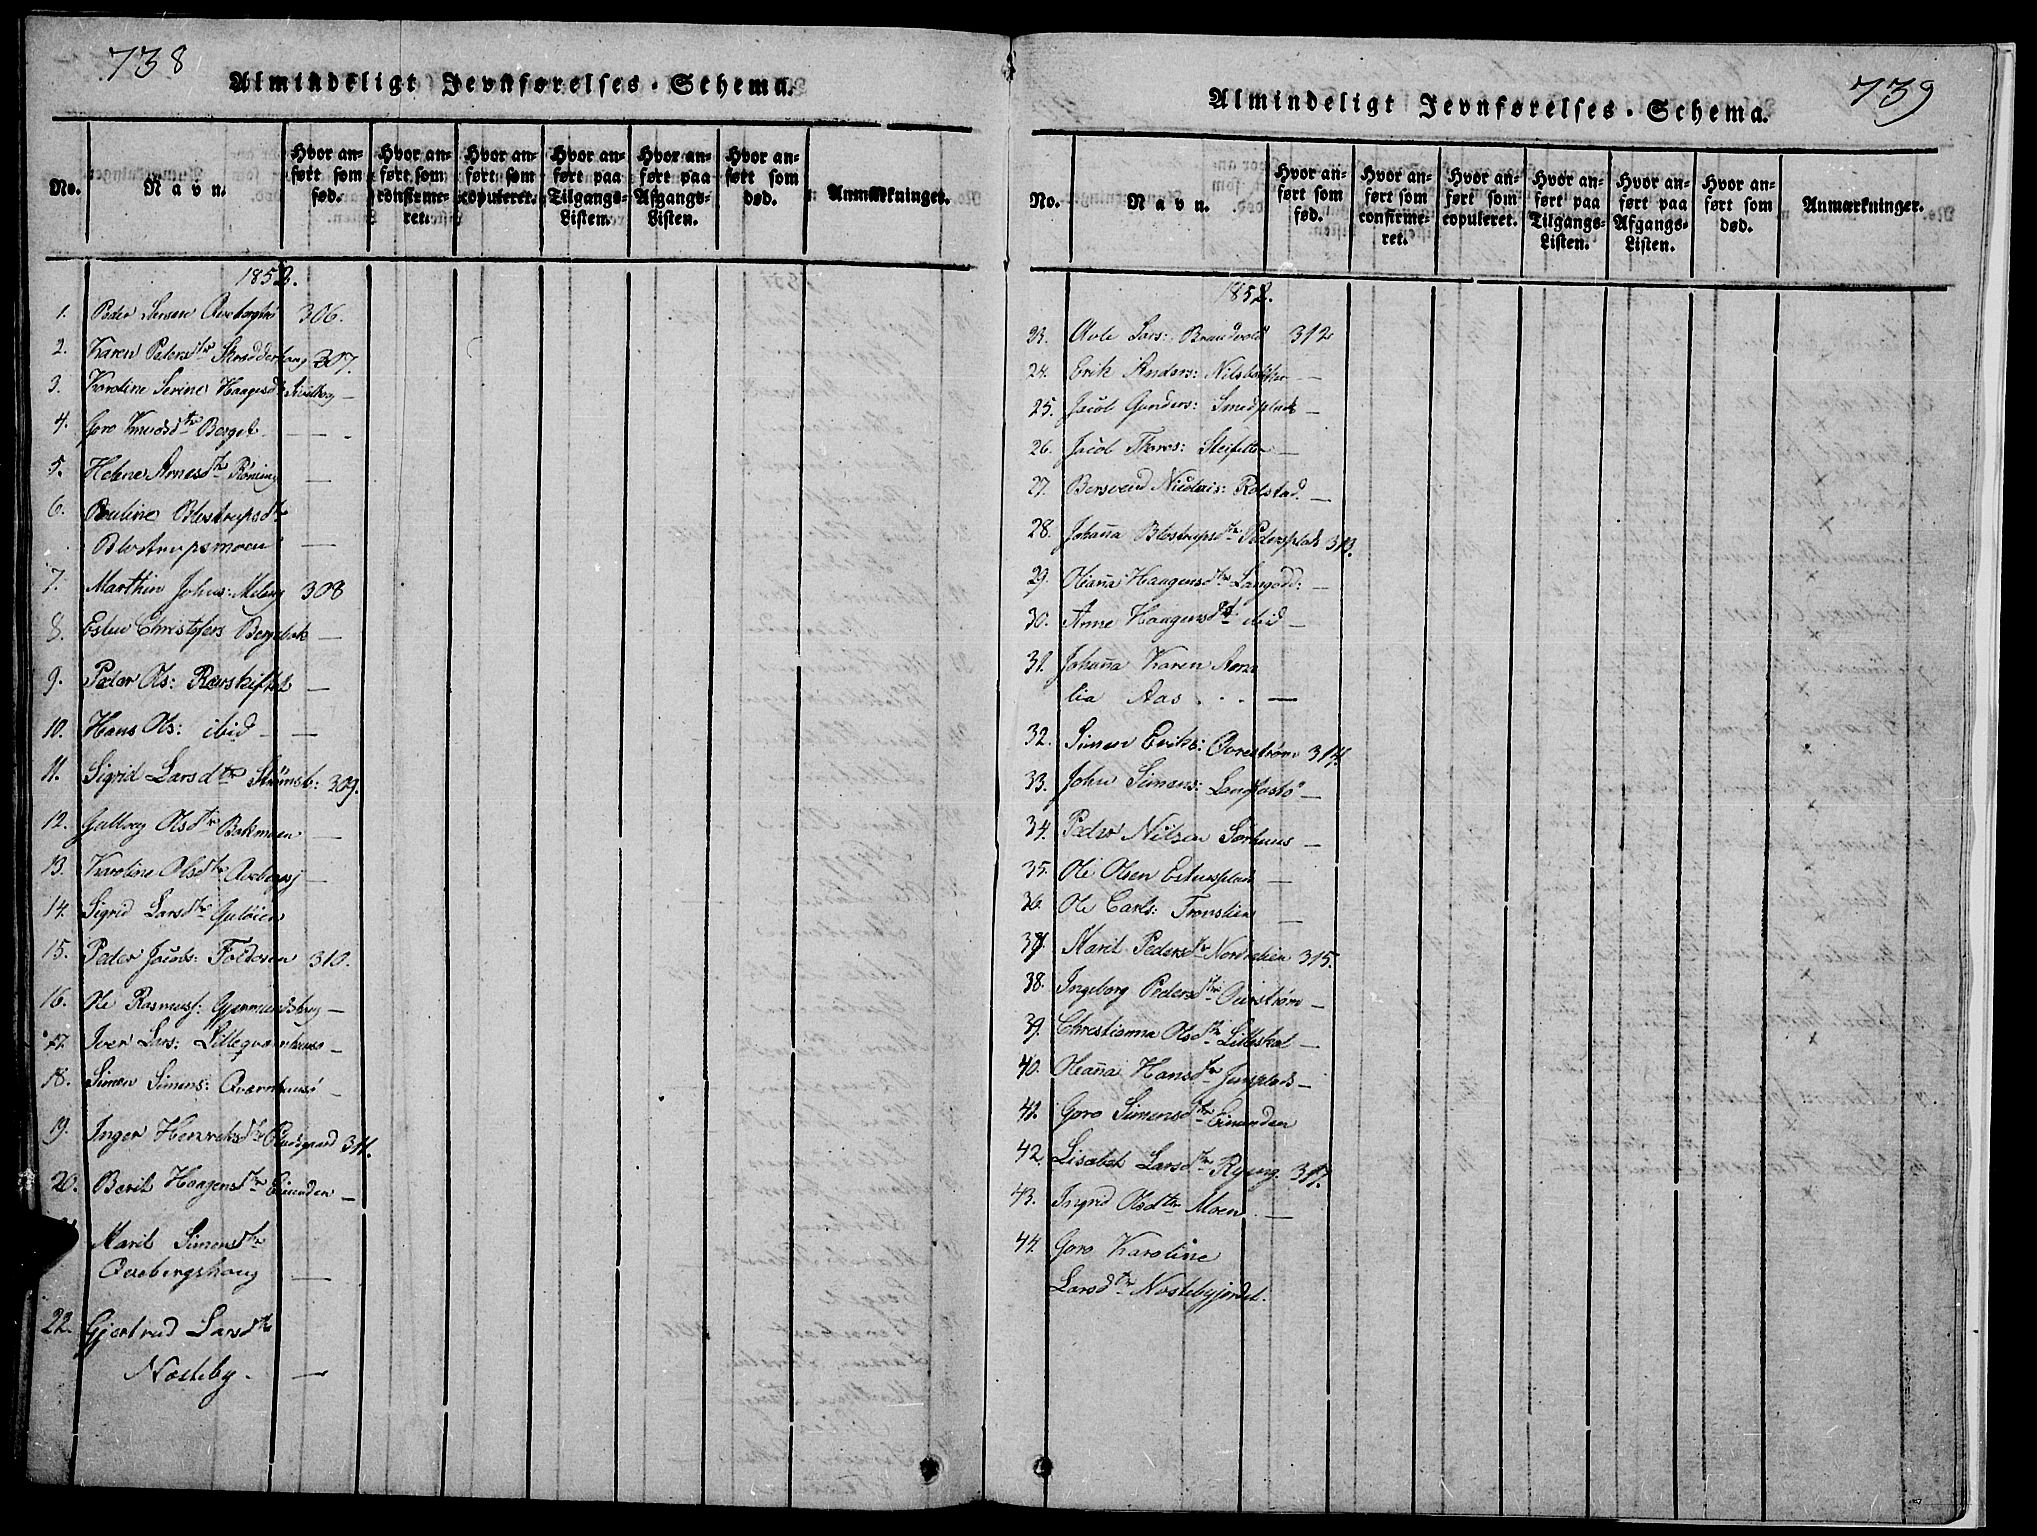 738
Almindeligt Jevnførelses-Schema.
No. Navn. Hvor anført som fød. Hvor anført som confirmeret. Hvor anført som copuleret. Hvor anført paa Tilgangs-Listen. Hvor anført paa Afgangs-Listen. Hvor anført som død. Anmærkninger.
1852.
1. Peder 306.
2. Karen Pedersdtr 307.
3. Karoline Serine Haagensdtr —
4. Goro Knudsdtr Berget —
5. Helene Arnesdtr Röning —
6. Pauline Blestrupsdtr
Blestrupsmoen —
7. Marthin Johns: Meberg 308
8. Esten Christofers Bergebak —
9. Peder Ols: Røvskiftet —
10. Hans Ols: ibid —
11. Sigrid Larsdtr Strömsb: 309.
12. Gullorg Olsdtr Bakmoen —
13. Karoline Olsdtr —
14. Sigrid Larsdtr
15. Peder Jacobs: Foldseen 310.
16. Ole Rasmus: Gjermundshaug —
17. Iver Lars: Lilleqvernhuusø —
18. Simen Simens: Qvernhuusø —
19. Inger Henriksdtr 311.
20. Berit Haagensdtr Einunden —
Marit Simensdtr
Qvebergshaug —
22. Gjertrud Larsdtr
Nosteby. —
739
Almindeligt Jevnførelses-Schema.
No. Navn. Hvor anført som fød. Hvor anført som confirmeret. Hvor anført som copuleret. Hvor anført paa Tilgangs-Listen. Hvor anført paa Afgangs-Listen. Hvor anført som død. Anmærkninger.
1852.
23. Lars: Brandvold 312
24. Erik Anders: Nilsbakken —
25. Jacob Gunders: Smedplads —
26. Jacob Thores: —
27. Bersvend Nicolais: Rolstad. —
28. Johanna Blestrupsdtr Pedersplads 313.
29. Oleanna Haagensdtr Langodd: —
30. Anne Haagensdtr ibid —
31. Johanna Karen
lia Aas . . —
32. Simen Eriks: Qverström 314.
33. John Simens: —
34. Peder Nilsen Sörhuus —
35. Ole Olsen Estensplads —
36. Ole Carls: Tronslien —
37. Marit Pedersdtr 315.
38. Ingeborg Pedersdtr —
39. Christianna Olsdtr —
40. Oleanna Hansdtr Jensplads —
41. Goro Simensdtr Einunden
42. Lisabet Larsdtr Ryeng. 317.
43. Ingrid Olsdtr Moen. —
44. Goro Karoline
Larsdtr Nostebyjordet.